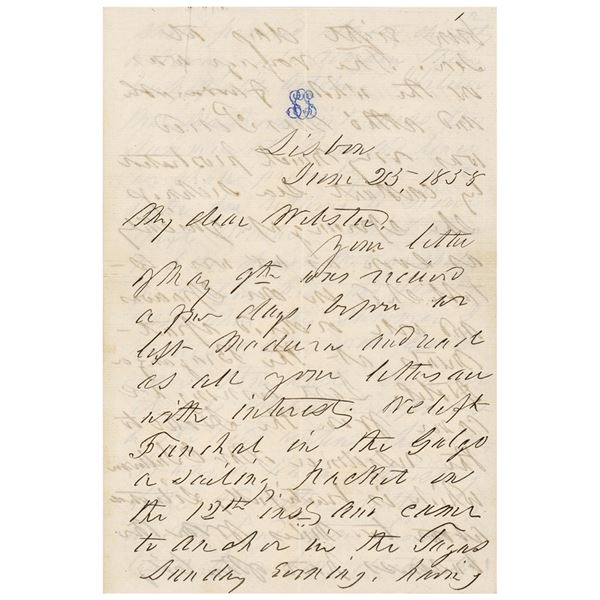 1
Lisbon
June 25, 1858
My dear Webster,
Your letter
of May 9th was received
a few days before we
left Madeira and read
as all your letters are
with interest; We left
Funchal in the Galgo
a sailing packet on
the 12th inst; and came
to anchor in the Tagus
Sunday Evening, having